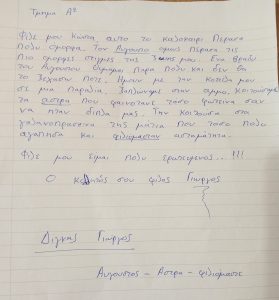 Τμημα Α2
Φιλε μου Κωστα αυτο το καλοκαιρι περασα
πολυ ομορφα. Τον Αυγουστο ομως περασα τις
πιο ομορφες στιγμες της ζωης μου. Ενα βραδυ
του Αυγουστου θυμαμαι παρα πολυ και δεν θα
το ξεχασω ποτε. Ημουν με την κοπελα μου
σε μια παραλια. Ξαπλωσαμε στην αμμο, κοιτουσαμε
τα αστρα που φαινοταν τοσο φωτεινα σαν
να ηταν διπλα μας. Την κοιτουσα στα
γαλανοπρασινα της ματια που τοσο πολυ
αγαπησα και φιλιομασταν ασταματητα.
Φιλε μου ειμαι πολυ ερωτευμενος...!!!
Ο κολλητος σου φιλος Γιωργος
Διγκας Γιωργος
Αυγουστος - Αστρα - φιλιομαστε